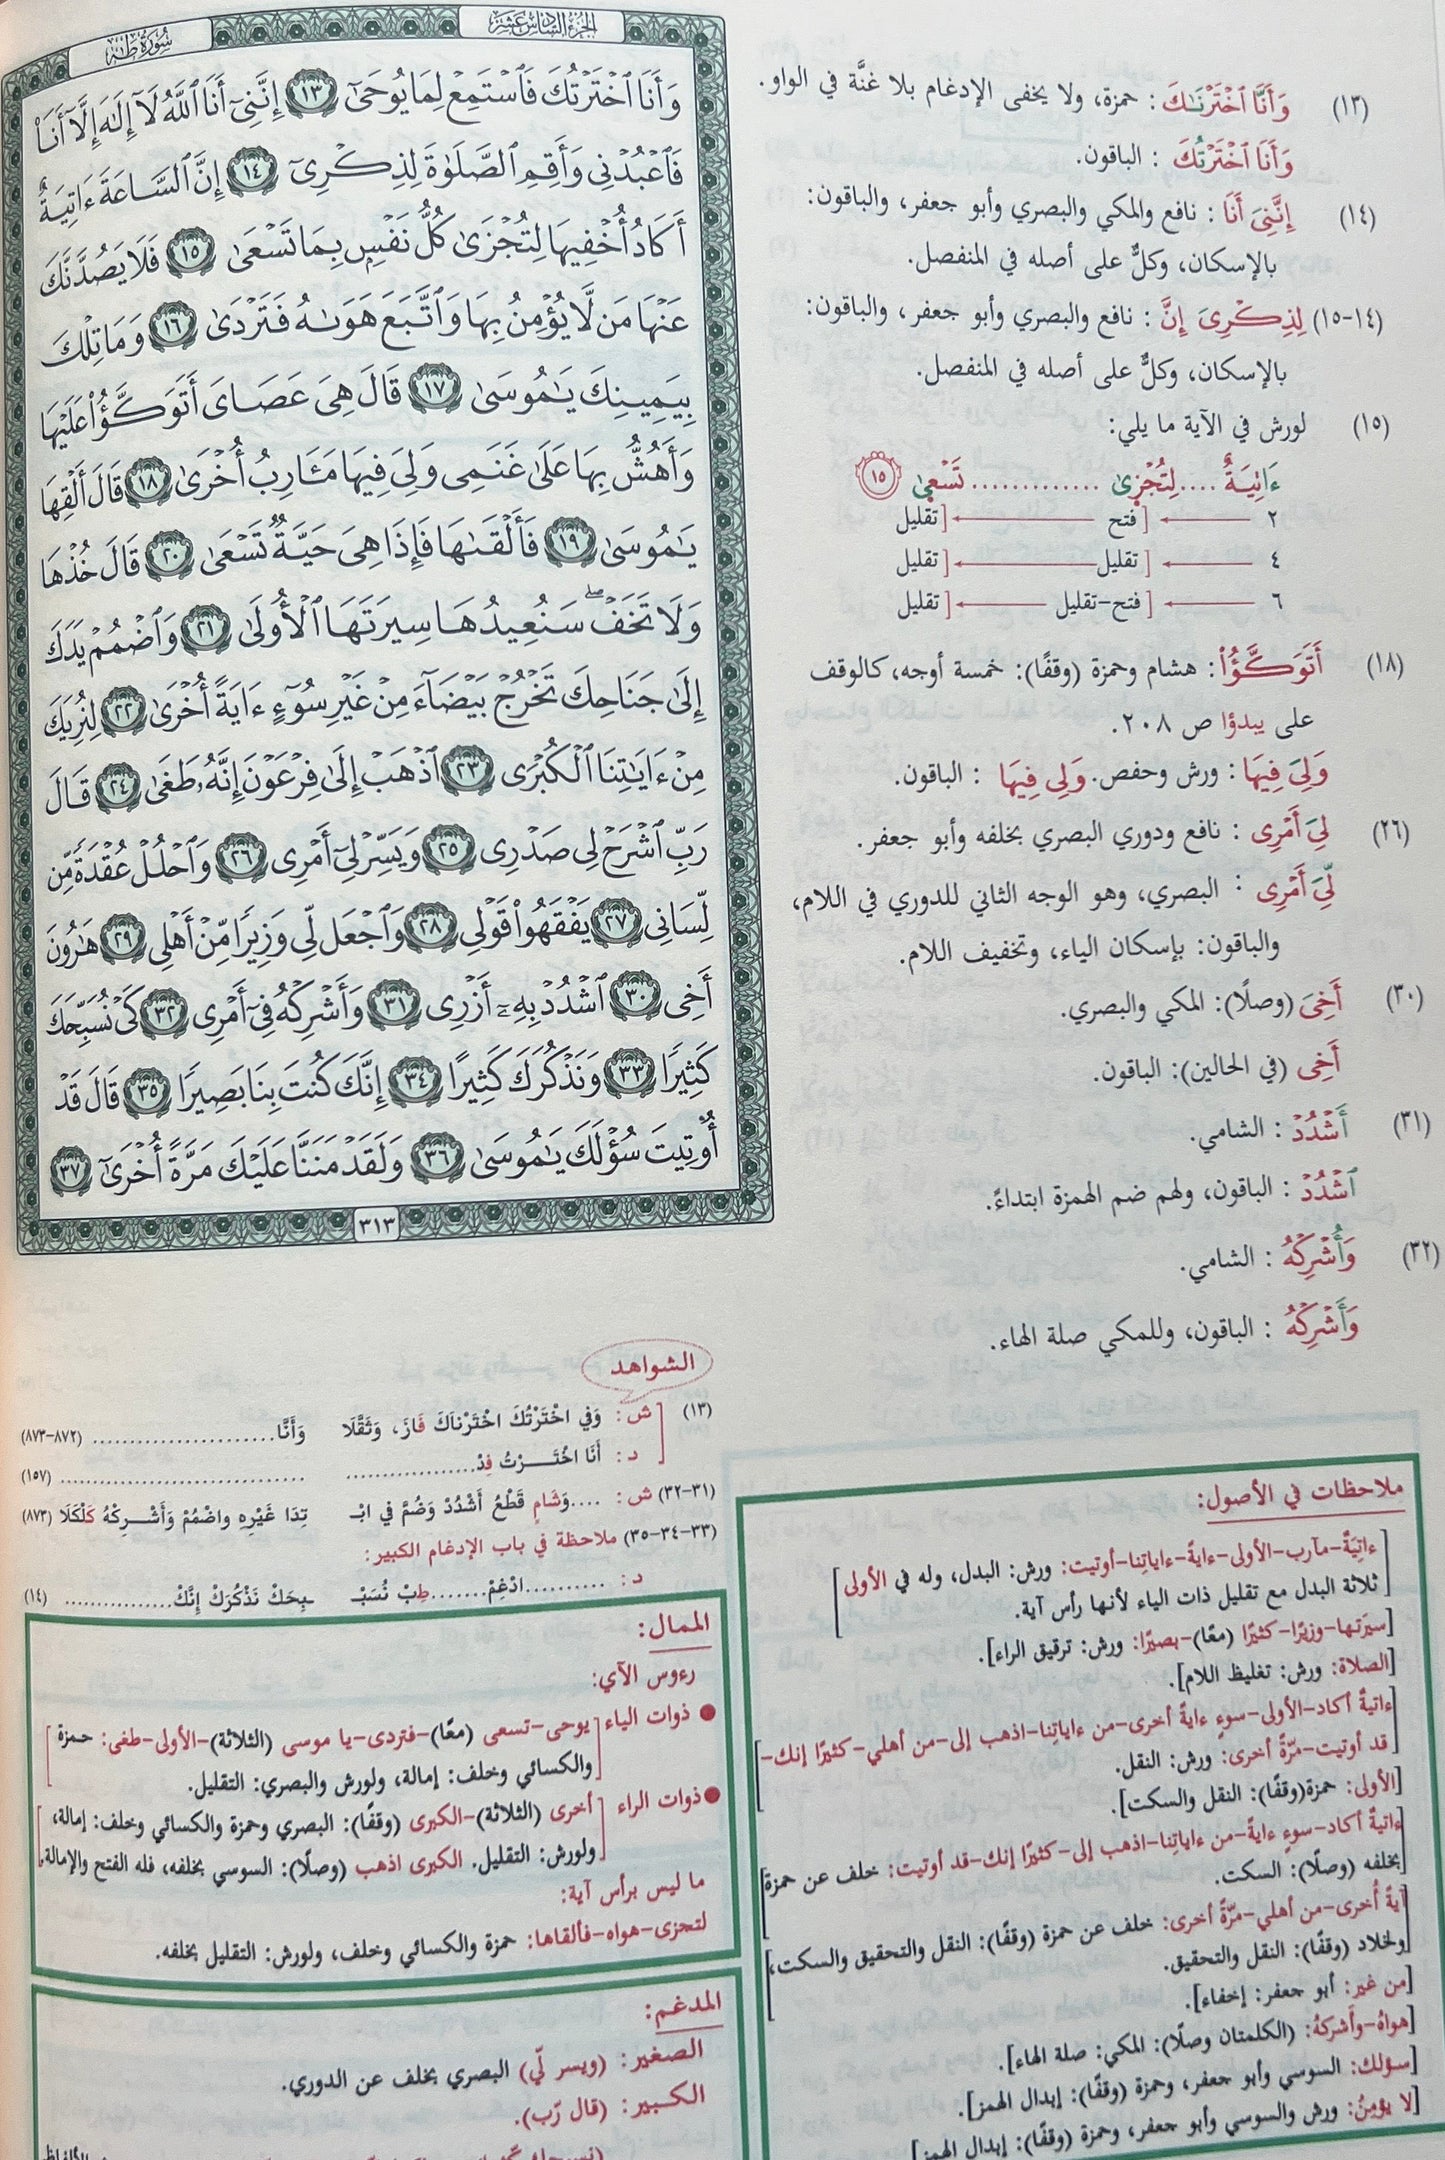 الجزء السادس عشر
سورة طه
وَأَنَا ٱخۡتَرۡتُكَ فَٱسۡتَمِعۡ لِمَا يُوحَىٰٓ ١٣ إِنَّنِيٓ أَنَا ٱللَّهُ لَآ إِلَٰهَ إِلَّآ أَنَا۠
فَٱعۡبُدۡنِي وَأَقِمِ ٱلصَّلَوٰةَ لِذِكۡرِيٓ ١٤ إِنَّ ٱلسَّاعَةَ ءَاتِيَةٌ
أَكَادُ أُخۡفِيهَا لِتُجۡزَىٰ كُلُّ نَفۡسِۭ بِمَا تَسۡعَىٰ ١٥ فَلَا يَصُدَّنَّكَ
عَنۡهَا مَن لَّا يُؤۡمِنُ بِهَا وَٱتَّبَعَ هَوَىٰهُ فَتَرۡدَىٰ ١٦ وَمَا تِلۡكَ
بِيَمِينِكَ يَٰمُوسَىٰ ١٧ قَالَ هِيَ عَصَايَ أَتَوَكَّؤُاْ عَلَيۡهَا
وَأَهُشُّ بِهَا عَلَىٰ غَنَمِي وَلِيَ فِيهَا مَـَٔارِبُ أُخۡرَىٰ ١٨ قَالَ أَلۡقِهَا
يَٰمُوسَىٰ ١٩ فَأَلۡقَىٰهَا فَإِذَا هِيَ حَيَّةٞ تَسۡعَىٰ ٢٠ قَالَ خُذۡهَا
وَلَا تَخَفۡۖ سَنُعِيدُهَا سِيرَتَهَا ٱلۡأُولَىٰ ٢١ وَٱضۡمُمۡ يَدَكَ
إِلَىٰ جَنَاحِكَ تَخۡرُجۡ بَيۡضَآءَ مِنۡ غَيۡرِ سُوٓءٍ ءَايَةً أُخۡرَىٰ ٢٢ لِنُرِيَكَ
مِنۡ ءَايَٰتِنَا ٱلۡكُبۡرَى ٢٣ ٱذۡهَبۡ إِلَىٰ فِرۡعَوۡنَ إِنَّهُۥ طَغَىٰ ٢٤ قَالَ
رَبِّ ٱشۡرَحۡ لِي صَدۡرِي ٢٥ وَيَسِّرۡ لِيٓ أَمۡرِي ٢٦ وَٱحۡلُلۡ عُقۡدَةٗ مِّن
لِّسَانِي ٢٧ يَفۡقَهُواْ قَوۡلِي ٢٨ وَٱجۡعَل لِّي وَزِيرٗا مِّنۡ أَهۡلِي ٢٩ هَٰرُونَ
أَخِي ٣٠ ٱشۡدُدۡ بِهِۦٓ أَزۡرِي ٣١ وَأَشۡرِكۡهُ فِيٓ أَمۡرِي ٣٢ كَيۡ نُسَبِّحَكَ
كَثِيرٗا ٣٣ وَنَذۡكُرَكَ كَثِيرًا ٣٤ إِنَّكَ كُنتَ بِنَا بَصِيرٗا ٣٥ قَالَ قَدۡ
أُوتِيتَ سُؤۡلَكَ يَٰمُوسَىٰ ٣٦ وَلَقَدۡ مَنَنَّا عَلَيۡكَ مَرَّةً أُخۡرَىٰٓ ٣٧
٣١٣
(١٣) وَأَنَّا ٱخۡتَرۡنَٰكَ: حمزة، ولا يخفى الإدغام بلا غنَّة في الواو.
وَأَنَا ٱخۡتَرۡتُكَ: الباقون.
(١٤) إِنَّنِيَ أَنَا: نافع والمكي والبصري وأبو جعفر، والباقون:
بالإسكان، وكلٌّ على أصله في المنفصل.
(١٤-١٥) لِذِكۡرِيَ إِنَّ: نافع والبصري وأبو جعفر، والباقون:
بالإسكان، وكلٌّ على أصله في المنفصل.
(١٥) لورش في الآية ما يلي:
ءَاتِيَةٌ .... لِتُجۡزىٰ ............. تَسۡعىٰ ١٥
٢ فتح تقليل
٤ تقليل تقليل
٦ فتح-تقليل تقليل
(١٨) أَتَوَكَّؤُاْ: هشام وحمزة (وقفًا): خمسة أوجه، كالوقف
على يبدؤا ص ٢٠٨.
وَلِيَ فِيهَا: ورش وحفص. وَلِي فِيهَا: الباقون.
(٢٦) لِيَ أَمۡرِي: نافع ودوري البصري بخلفه وأبو جعفر.
لِّيَ أَمۡرِي: البصري، وهو الوجه الثاني للدوري في اللام،
والباقون: بإسكان الياء، وتخفيف اللام.
(٣٠) أَخِيَ (وصلًا): المكي والبصري.
أَخِي (في الحالين): الباقون.
(٣١) أَشۡدُدۡ: الشامي.
ٱشۡدُدۡ: الباقون، ولهم ضم الهمزة ابتداءً.
(٣٢) وَأُشۡرِكۡهُ: الشامي.
وَأَشۡرِكۡهُ: الباقون، وللمكي صلة الهاء.
الشواهد
(١٣) ش: وَفي اخْتَرْتُكَ اخْتَرْناكَ فَازَ، وَثَقَّلَا وَأَنَّا ........................ (٨٧٢-٨٧٣)
د: أَنَا اخْتَـــرْتُ فِدْ .................. .................................. (١٥٧)
(٣١-٣٢) ش: ....وَشَامٍ قَطْعُ أَشْدُدْ وَضُمَّ في ابْـ تِدَا غَيْرِهِ واضْمُمْ وَأَشْـــرِكْهُ كَلْكَلَا (٨٧٣)
(٣٣-٣٤-٣٥) ملاحظة في باب الإدغام الكبير:
د: ..........ادْغِمْ.......طِبْ نُسَبْـ ـبِحَكْ نَذْكُرَكْ إِنَّكْ.............. (١٤)
الممال:
رءوس الآي:
● ذوات الياء [يوحى-تسعى (معًا)-فتردى-يا موسى (الثلاثة)-الأولى-طغى: حمزة
والكسائي وخلف: إمالة، ولورش والبصري: التقليل.
● ذوات الراء [أخرى (الثلاثة)-الكبرى (وقفًا): البصري وحمزة والكسائي وخلف: إمالة،
ولورش: التقليل. الكبرى اذهب (وصلًا): السوسي بخلفه، فله الفتح والإمالة.
ما ليس برأس آية:
لتجزى-هواه-فألقاها: حمزة والكسائي وخلف، ولورش: التقليل بخلفه.
المدغم:
الصغير: (ويسر لّي) البصري بخلف عن الدوري.
الكبير: (قال رّب).
ملاحظات في الأصول:
[ءاتيَةٌ-مآرب-الأولى-ءايةً-ءاياتِنا-أوتيت: ورش: البدل، وله في الأولى
ثلاثة البدل مع تقليل ذات الياء لأنها رأس آية.]
[سيَرتها-وزيرًا-كثيرًا (معًا)-بصيرًا: ورش: ترقيق الراء].
[الصلاة: ورش: تغليظ اللام].
[ءاتيةٌ أكاد-الأولى-سوءٍ ءايةً أخرى-من ءاياتِنا-اذهب إلى-من أهلي-كثيرًا إنك-
قد أوتيت-مرّةً أخرى: ورش: النقل.
[الأولى: حمزة(وقفًا): النقل والسكت].
[ءاتيةٌ أكاد-سوءٍ ءايةً-من ءاياتِنا-اذهب إلى-كثيرًا إنك-قد أوتيت: خلف عن حمزة
بخلفه (وصلًا): السكت.
[آيةً أُخرى-من أهلي-مرّةً أخرى: خلف عن حمزة (وقفًا): النقل والتحقيق والسكت،
ولخلاد (وقفًا): النقل والتحقيق.
[من غير: أبو جعفر: إخفاء].
[هواهُ-وأَشركهُ: (الكلمتان وصلًا): المكي: صلة الهاء].
[سؤلك: السوسي وأبو جعفر، وحمزة (وقفًا): إبدال الهمز].
[لا يؤمِنُ: ورش والسوسي وأبو جعفر، وحمزة (وقفًا): إبدال الهمز]